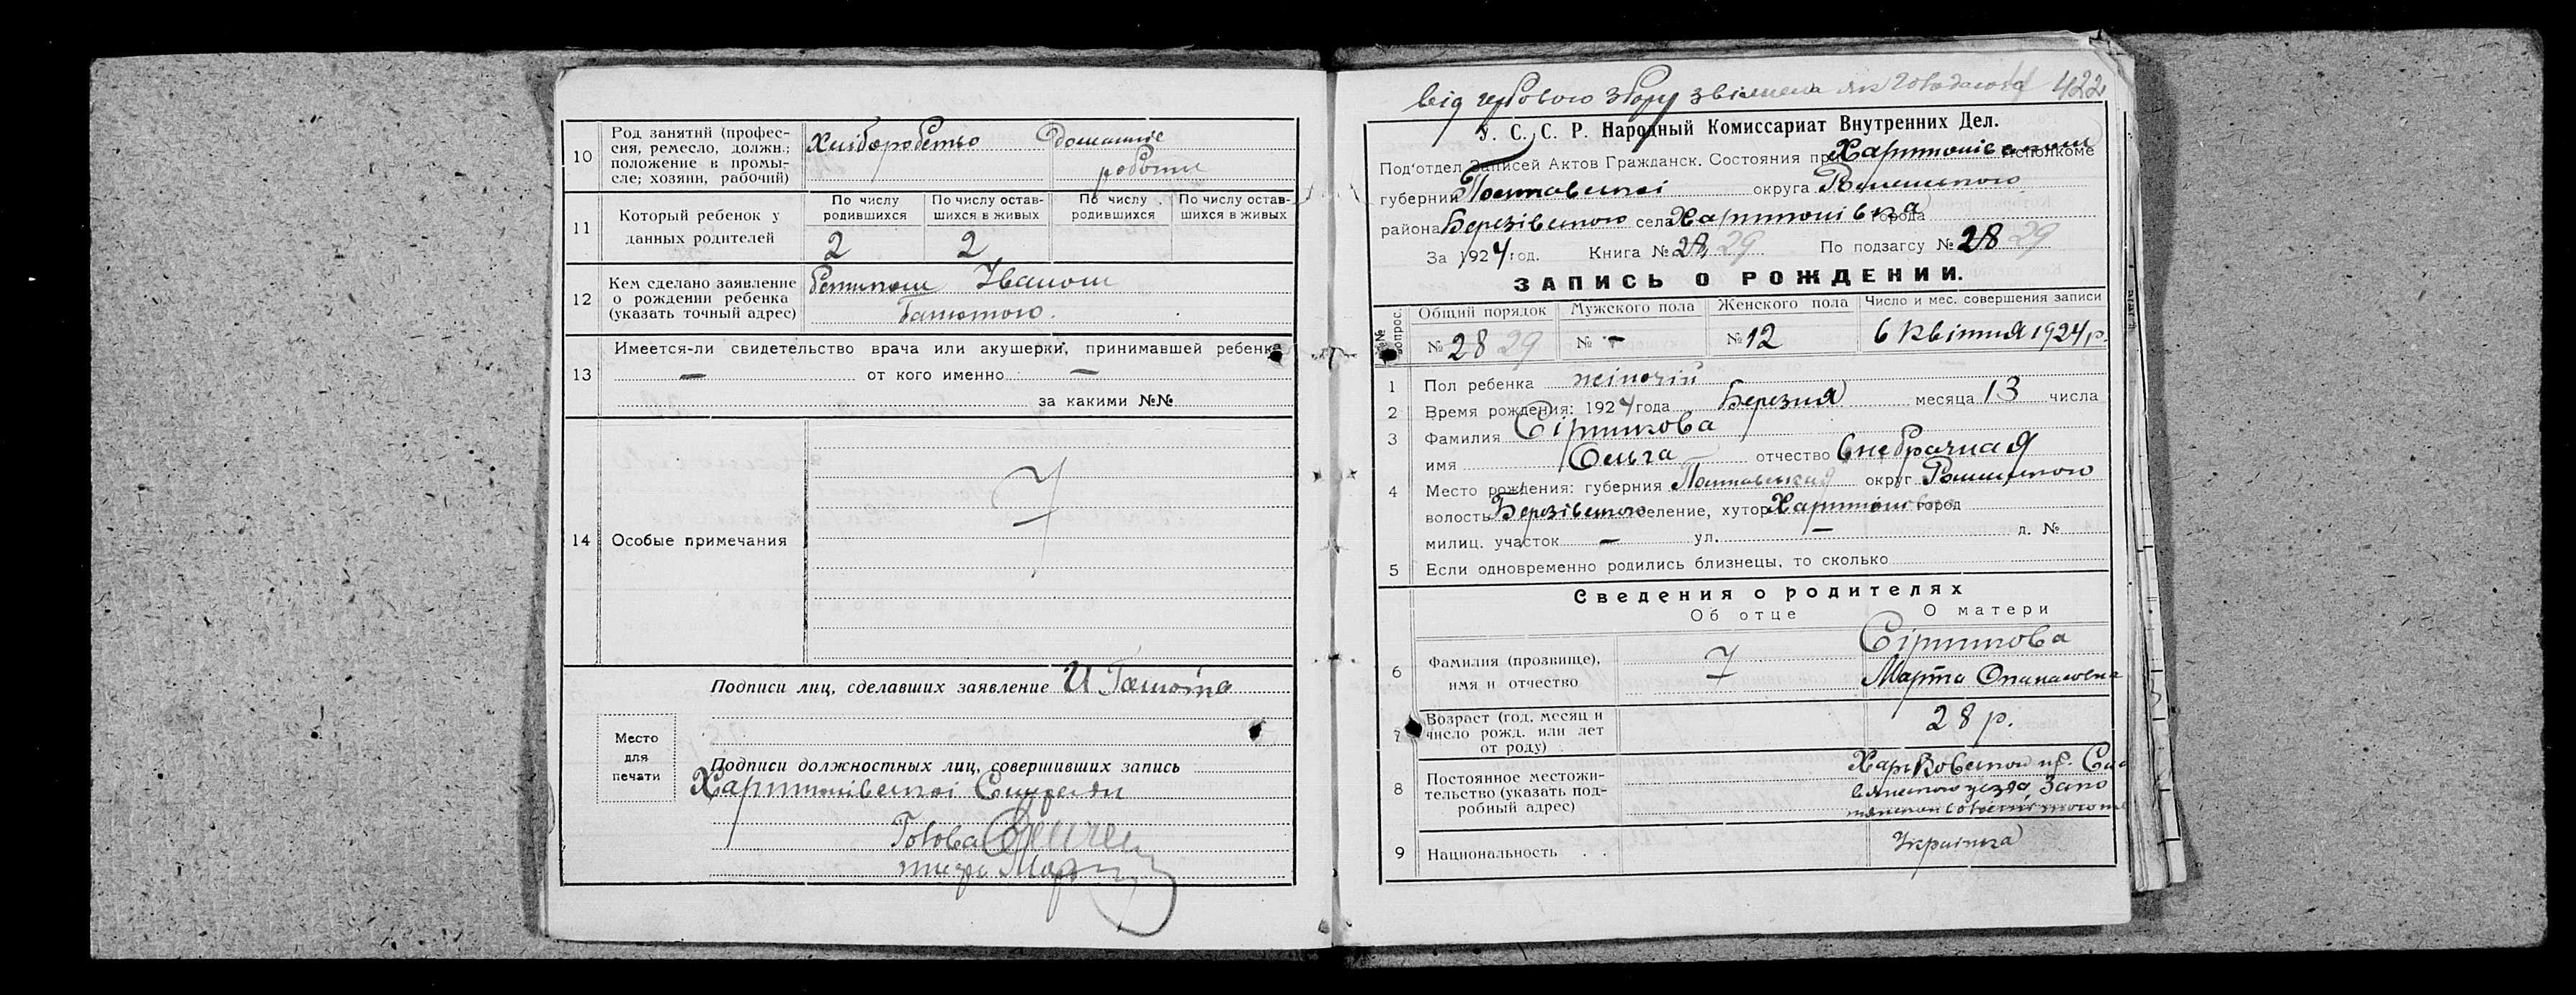 10 Род занятий (профес-
сия, ремесло, должн.;
положение в промы-
сле; хозяин, рабочий)
Хліборобство
домашнє
роботи
11 Который ребенок у
данных родителей
По числу
родившихся
По числу остав-
шихся в живых
По числу
родившихся
По числу остав-
шихся в живых
2 2
12 Кем сделано заявление
о рождении ребенка
(указать точный адрес)
Іваном
13 Имеется-ли свидетельство врача или акушерки, принимавшей ребенка
— от кого именно —
за какими №№
14 Особые примечания
Подписи лиц, сделавших заявление И
Место
для
печати
Подписи должностных лиц, совершивших запись
Харитонівської Сільради
Голова
від гербового збору звільнена як 422
У. С. С. Р. Народный Комиссариат Внутренних Дел.
Под'отдел Записей Актов Гражданск. Состояния при Харитонівським Исполкоме
губернии Полтавської округа Роменського
района Березівського села Харитонівка города
За 1924 год. Книга № 28 29 По подзагсу № 28 29
ЗАПИСЬ О РОЖДЕНИИ.
№№ вопрос.
Общий порядок Мужского пола Женского пола Число и мес. совершения записи
№ 28 29 № — № 12 6 Квітня 1924 р.
1 Пол ребенка жіночій
2 Время рождения: 1924 года Березня месяца 13 числа
3 Фамилия Сіртикова
имя Ольга отчество внебрачная
4 Место рождения: губерния Полтавская округ Роменського
волость Березівського селение, хутор Харитонівка город
милиц. участок — ул. — д. №
5 Если одновременно родились близнецы, то сколько
Сведения о родителях
Об отце О матери
6 Фамилия (прозвище),
имя и отчество
Сіртикова
Марта Опанасовна
7 Возраст (год. месяц и
число рожд. или лет
от роду)
28 р.
8 Постоянное местожи-
тельство (указать под-
робный адрес)
Харьковской
уезда
9 Национальность . .
Українка